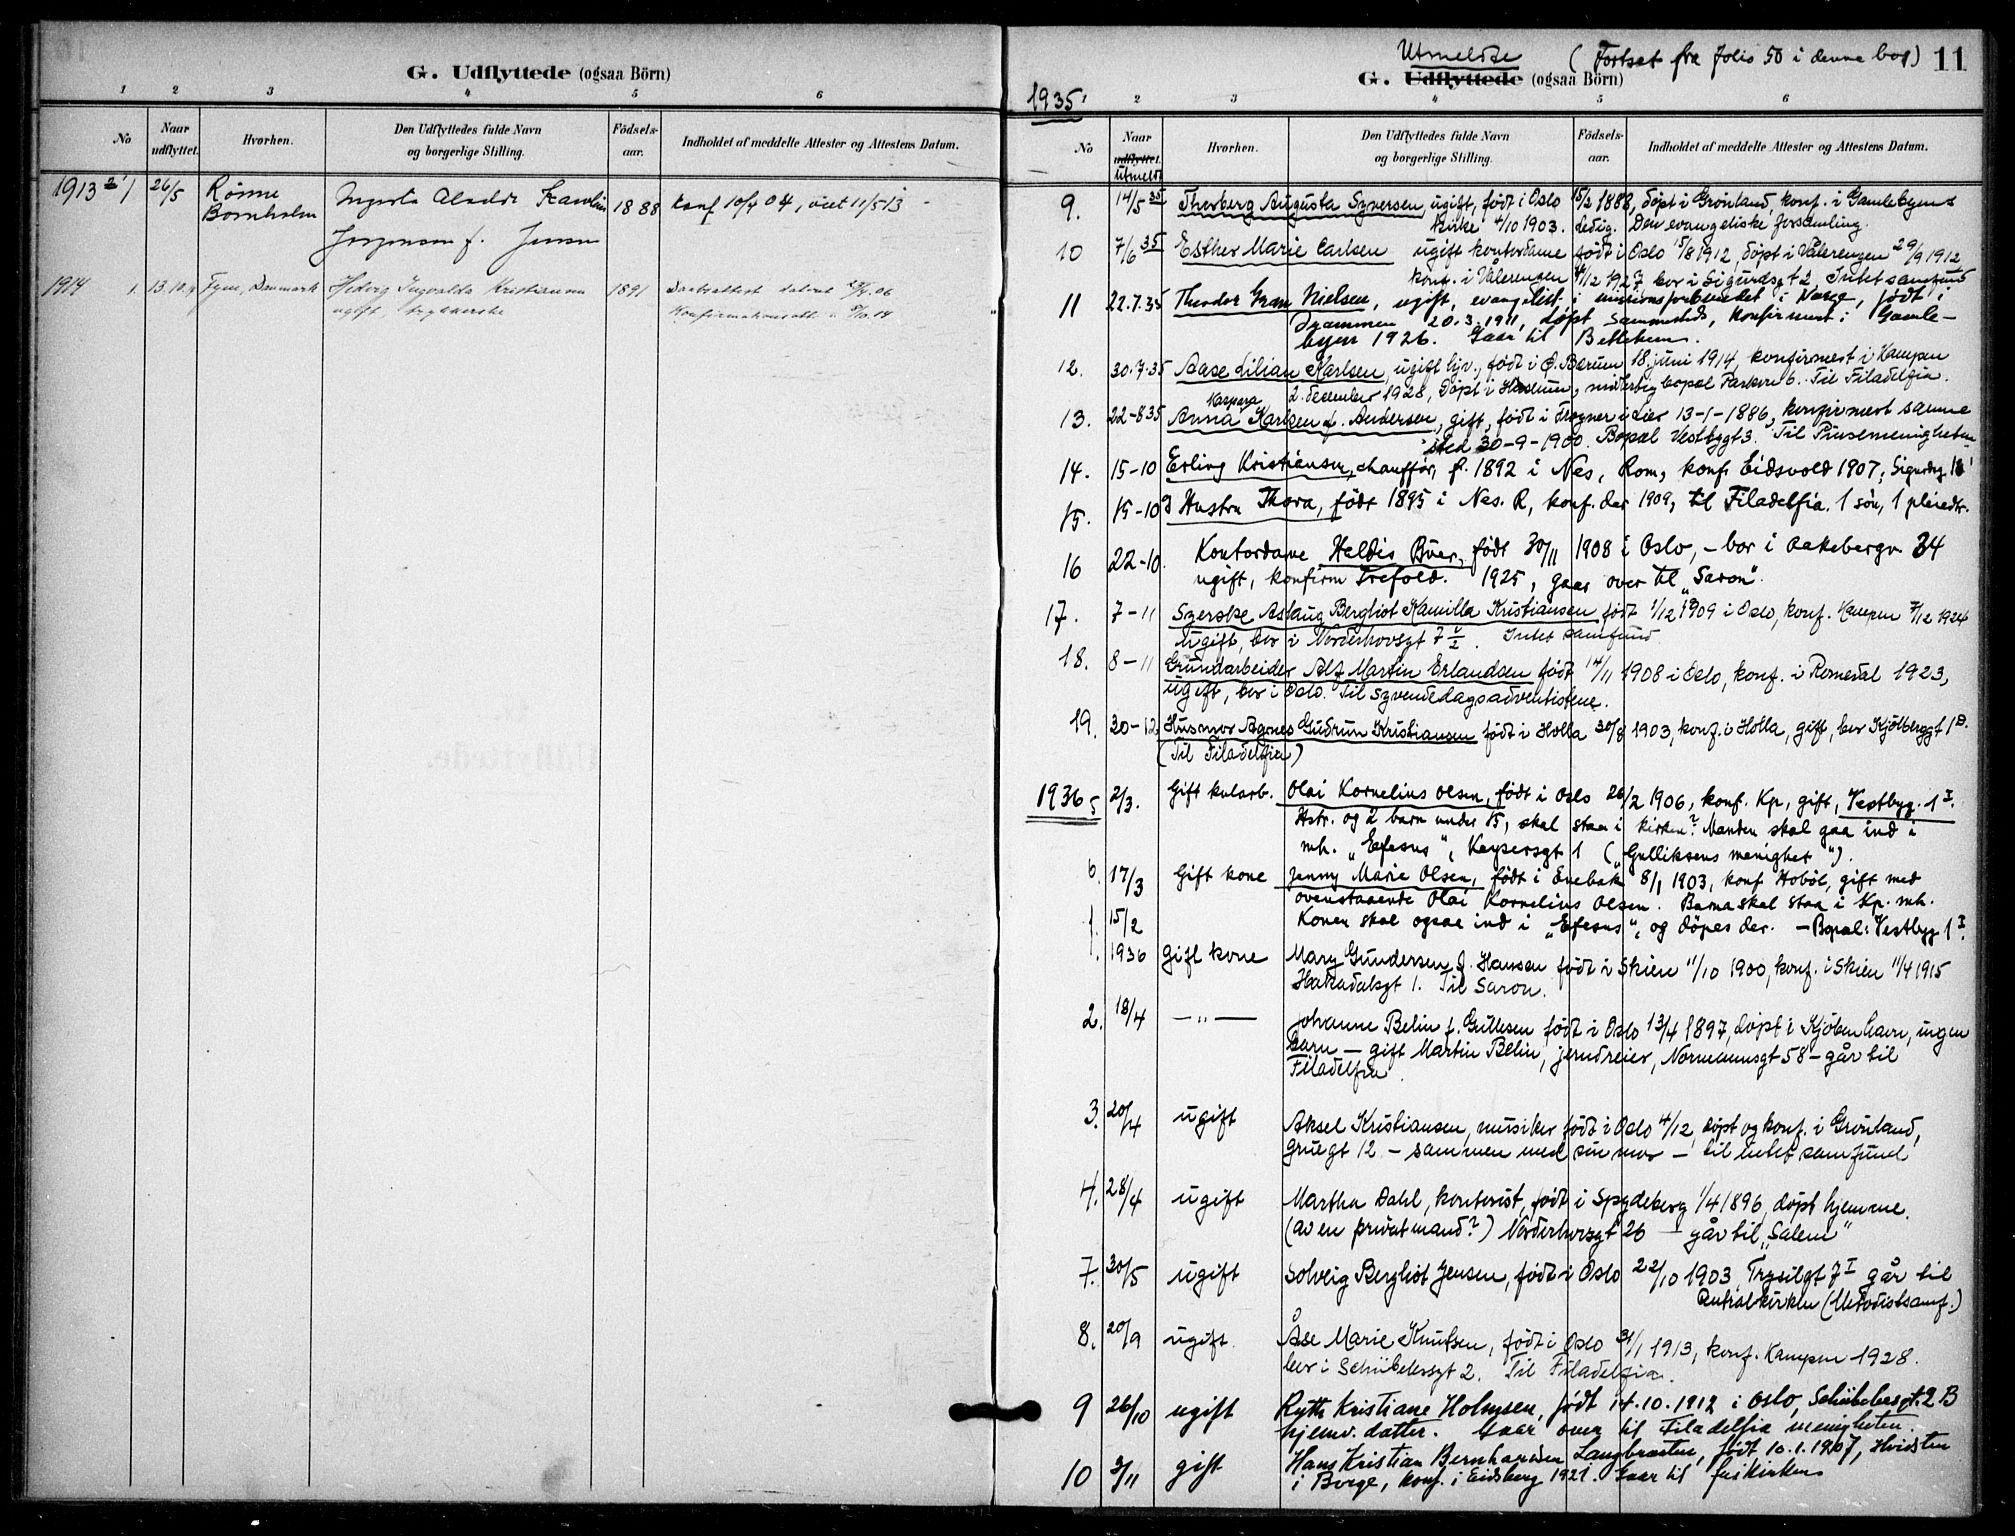 G. Udflyttede (ogsaa Börn)
1 2 3 4 5 6
No
Naar udflyttet.
Hvorhen.
Den Udflyttedes fulde Navn og borgerlige Stilling.
Födsels-aar.
Indholdet af meddelte Attester og Attestens Datum.
1913 1 26/5 Rönne Ingerta Karoline 1888 Konf 10/4 04, viet 11/5 13
Bornholm Jorgensen f. Jensen
1914 1. 13.10.14 Fyen, Danmark Hedvig Ingvalda Kristiansen 1891 Daabsattest dateret
ugift, Konfirmationsatt. 
Utmeldte (Fortsat fra folio 50 i denne bog) 11
G. Udflyttede (ogsaa Börn)
1935
1 2 3 4 5 6
No
Naar udflyttet. utmeldt
Hvorhen.
Den Udflyttedes fulde Navn og borgerlige Stilling.
Födsels-aar.
Indholdet af meddelte Attester og Attestens Datum.
9. 14/5 35 Thorberg Augusta Syversen, ugift, født i Oslo 15/2 1888, døpt i Grønland, konf. i Gamlebyens
kirke 4/10 1903. Ledig. Den evangeliske forsamling.
10 7/6 35 Esther Marie Carlsen ugift kontordame født i Oslo 15/8 1912, døpt i Vålerengen 29/9 1912
konf. i Vålerengen 4/12 1927, bor i Sigurdsgt 2, Intet samfund
11 22.7.35 Theodor Gran Nielsen, ugift, evangelist i misionsforbundet i Norge, født i
Drammen 20.3.1911, døpt sammesteds, konfirmert i Gamle-
byen 1926. Gaar til Betlehem.
12. 30.7.35 Aase Lilian Karlsen, ugift hjv., født i Ø. Bærum 18 juni 1914, konfirmert i Kampen
2. december 1928, Døpt i Haslum, midlertidig bopæl Parkvn 6. Til Filadelfia.
13. 22-8 35 Anna Kaspara Karlsen f. Andersen, gift, født i Frogner i Lier 13-1-1886, konfirmert samme
sted 30-9-1900. Bopæl Vestbygt 3. Til Pinsemenigheten
14. 15-10 Erling Kristiansen, chauffør, f. 1892 i Nes, Rom, konf. Eidsvold 1907, Sigurdsg
15. 15-10 Hustru Thora, født 1895 i Nes. R, konf. der 1909, til Filadelfia. 1 søn, 1 pleiedtr.
16 22-10 Kontordame Haldis Buer, født 30/11 1908 i Oslo, - bor i Aakebergv 34
ugift, konfirm Trefold. 1925, gaar over til "Saron".
17. 7-11 Syerske Aslaug Bergliot Kamilla Kristiansen født 1/12 1909 i Oslo, konf. Kampen 7/12 1924
ugift, bor i Norderhovsgt 7 1/2. Intet samfund
18. 8-11 Grundarbeider Alf Martin Erlandsen født 14/11 1908 i Oslo, konf. i Romedal 1923,
ugift, bor i Oslo. Til syvendedagsadventistene.
19. 30-12 Husmor Agnes Gudrun Kristiansen født i Holla 30/8 1903, konf. i Holla, gift, bor Kjølberggt 1 B.
(Til Filadelfia)
1936 5 2/3. Gift kularb. Olai Kornelius Olsen, født i Oslo 26/2 1906, konf. Kp, gift, Vestbyg. 1 I.
Hstr. og 2 barn under 15, skal staa i kirken? Manden skal gaa ind i
mh. "Efesus", Keysersgt 1 ("Gulliksens menighet").
6. 17/3 Gift kone Jenny Marie Olsen, født i Enebak 8/1 1903, konf Hobøl, gift med
ovenstaaende Olai Kornelius Olsen. Barna skal staa i Kp. mh.
Konen skal ogsaa ind i "Efesus", og døpes der. - Bopæl: Vestbyg 1 I.
1. 15/2 1936 gift kone Mary Gundersen f. Hansen født i Skien 11/10 1900, konf. i Skien 11/4 1915
Hakadalsgt 1. Til Saron.
2. 18/4 — " — Johanne Belin f. Gullesen født i Oslo 13/4 1897, døpt i Kjøbenhavn, ingen
barn - gift Martin Belin, jerndreier, Normannsgt 58 - går til
Filadelfia.
3. 20/4 ugift Aksel Kristiansen, musiker født i Oslo 4/12, døpt og konf. i Grønland,
Gruegt 12 - sammen med sin mor - til intet samfund
4. 28/4 ugift Martha Dahl, kontorist, født i Spydeberg 1/4 1896, døpt hjemme.
(av en privat mand?) Norderhovsgt 26 - går til "Salem"
7. 30/5 ugift Solveig Bergliot Jensen, født i Oslo 22/10 1903, Trysilgt 7 I går til
Centralkirken (Metodistsamf.)
8. 20/9 ugift. Åse Marie Knutsen, født i Oslo 31/1 1913, konf. Kampen 1928.
bor i Schübelersgt 2. Til Filadelfia.
9 26/10 ugift Ruth Kristiane Holmsen, født 14.10.1912 i Oslo, Schübelersgt. 2 B
hjemv. datter. Gaar over til Filadelfia menigheten.
10 3/11 gift Hans Kristian Bernhardsen Langbraaten, født 10.1.1907, Hvidsten
i Borge, konf. i Eidsberg 1921. Gaar til frikirken